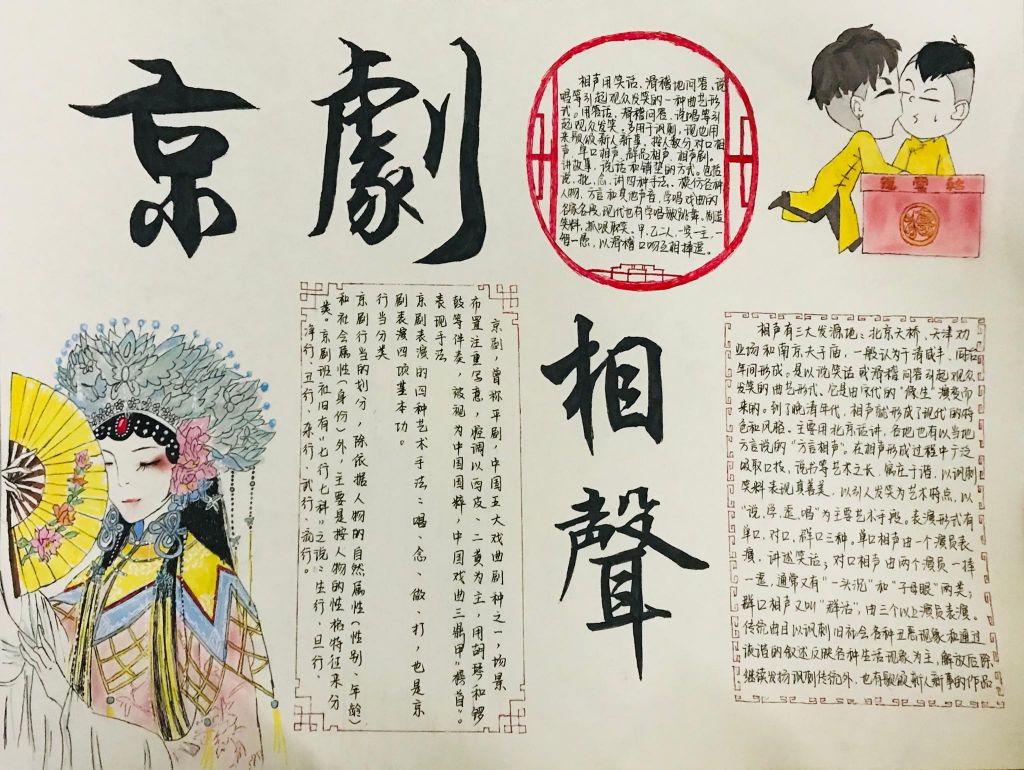 京劇
相声用笑话、滑稽地问答、说
唱等引起观众发笑的一种曲艺形
式。用笑话、滑稽问答、说唱等引
起观众发笑。多用于讽刺，现也用
来歌颂新人新事。按人数分对口相
声、单口相声、群品相声、相声剧。
讲故事，说话和铺垫的方式。包括
说、批、念、讲四种手法。模仿各种
人物、方言和其他声音，学唱戏曲的
名家名段，现代也有学唱歌跳舞。制造
笑料，抓哏取笑。甲、乙二人，一实一主，一
智一愚，以滑稽口吻互相捧逗。
京剧，曾称平剧，中国五大戏曲剧种之一，场景
布置注重写意，腔调以西皮、二黄为主，用胡琴和锣
鼓等伴奏，被视为中国国粹，中国戏曲三鼎甲"榜首"。
表现手法
京剧表演的四种艺术手法：唱、念、做、打，也是京
剧表演四项基本功。
行当分类
京剧行当的划分，除依据人物的自然属性（性别、年龄）
和社会属性（身份）外，主要是按人物的性格特征来分
类。京剧班社旧有"七行七科"之说：生行、旦行、
净行、丑行、杂行、武行、流行。
相聲
相声有三大发源地：北京天桥、天津劝
业场和南京夫子庙，一般认为于清咸丰、同治
年间形成。是以说笑话或滑稽问答引起观众
发笑的曲艺形式。它是由宋代的"像生"演变而
来的。到了晚清年代，相声就形成了现代的特
色和风格。主要用北京话讲，各地也有以当地
方言说的"方言相声"。在相声形成过程中广泛
吸取口技、说书等艺术之长，寓庄于谐，以讽刺
笑料表现真善美，以引人发笑为艺术特点，以
"说、学、逗、唱"为主要艺术手段。表演形式有
单口、对口、群口三种。单口相声由一个演员表
演，讲述笑话；对口相声由两个演员一捧
一逗，通常又有"一头沉"和"子母哏"两类；
群口相声又叫"群活"，由三个以上演员表演。
传统曲目以讽刺旧社会各种丑恶现象和通过
诙谐的叙述反映各种生活现象为主，解放后除
继续发扬讽刺传统外，也有歌颂新人新事的作品